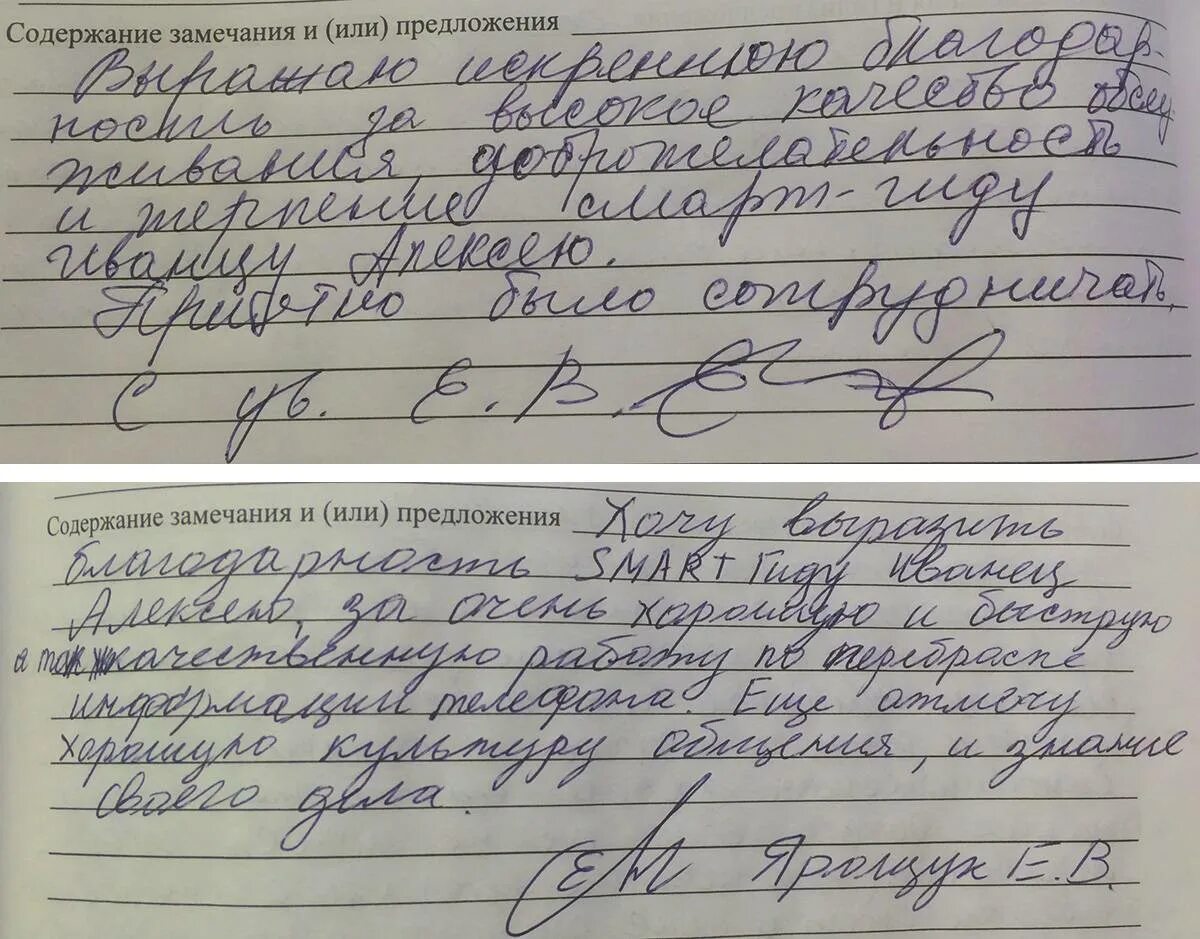 Содержание замечания и (или) предложения
Выражаю искреннюю благодар-
ность за высокое качество обслу-
живания, доброжелательность
и терпение смарт-гиду
Иванцу Алексею.
Приятно было сотрудничать.
С ув. Е. В.
Содержание замечания и (или) предложения Хочу выразить
благодарность SMART Гиду Иванец
Алексею, за очень хорошую и быструю
а также качественную работу по перебраске
информации телефона. Еще отмечу
хорошую культуру общения, и знание
своего дела.
Ярощук Е. В.